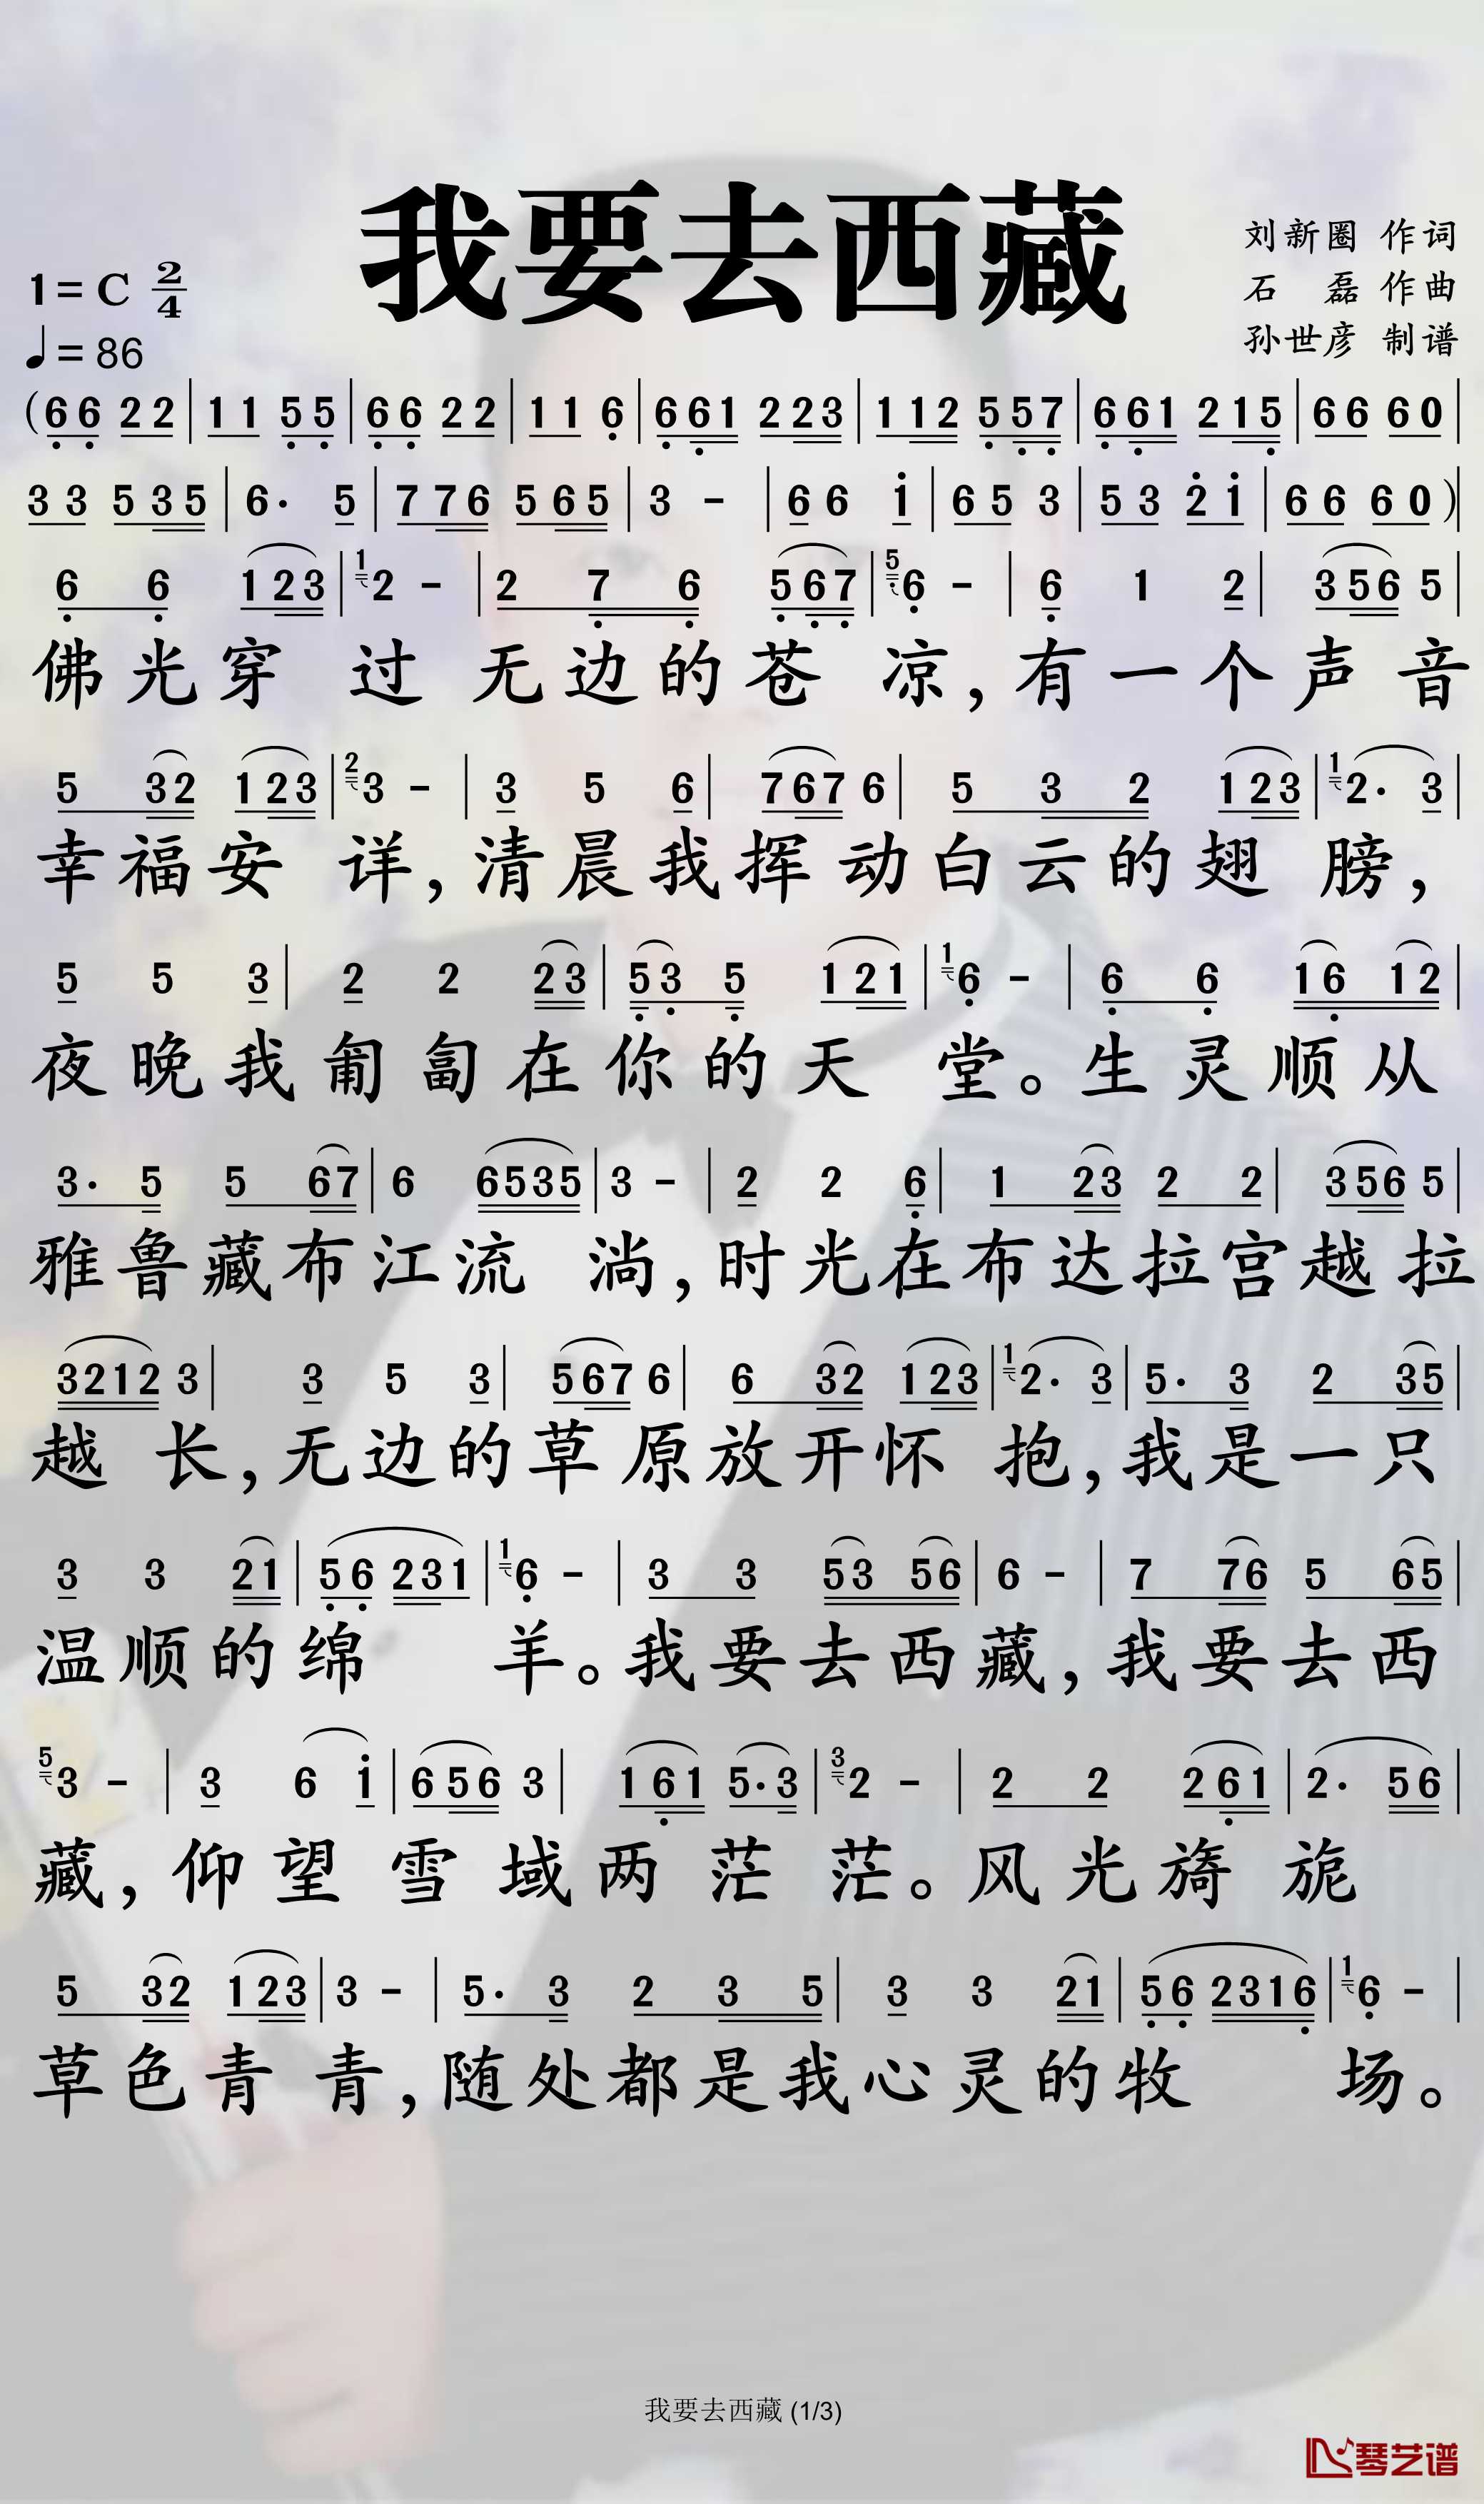 我要去西藏
刘新圈 作词
石 磊 作曲
孙世彦 制谱
1=C 2/4
♩=86
(6̣6̣ 22|11 5̣5̣|6̣6̣ 22|11 6̣|6̣6̣1 223|112 5̣5̣7̣|6̣6̣1 215̣|66 60|
33 535|6· 5|776 565|3 -|66 i̇|65 3|53 2̇i̇|66 60)|
6̣ 6̣ 123|¹2 -|2 7̣ 6̣ 5̣6̣7̣|⁵6̣ -|6̣ 1 2|356 5|
佛光穿 过 无边的苍 凉,有一个声 音
5 32 123|²3 -|3 5 6|767 6|5 3 2 123|¹2· 3|
幸福安 详,清晨我挥动白云的翅 膀,
5 5 3|2 2 23|5̣3̣ 5̣ 121|¹6̣ -|6̣ 6̣ 16̣ 12|
夜晚我匍匐在你的天 堂。生灵顺从
3· 5 5 67|6 6535|3 -|2 2 6̣|1 23 2 2|356 5|
雅鲁藏布江流 淌,时光在布达拉宫越拉
3212 3|3 5 3|567 6|6 32 123|¹2· 3|5· 3 2 35|
越 长,无边的草原放开怀 抱,我是一只
3 3 21|5̣6̣ 231|¹6̣ -|3 3 53 56|6 -|7 76 5 65|
温顺的绵 羊。我要去西藏,我要去西
⁵3 -|3 6 i̇|656 3|16̣1 5·3|³2 -|2 2 26̣1|2· 56|
藏,仰望雪域两茫 茫。风光旖旎
5 32 123|3 -|5· 3 2 3 5|3 3 21|5̣6̣ 2316̣|¹6̣ -|
草色青青,随处都是我心灵的牧 场。
我要去西藏 (1/3)
琴艺谱